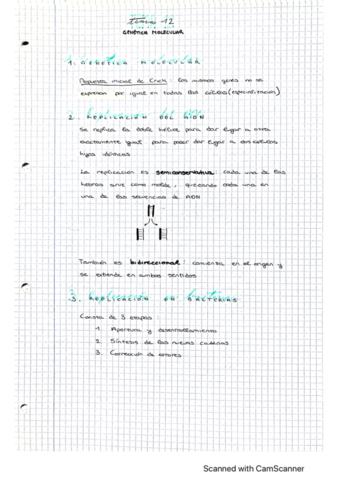 Tema 12
GENÉTICA MOLECULAR
1. GENÉTICA MOLECULAR
Propuesta inicial de Crick: los mismos genes no se
expresan por igual en todas las células (especialización)
2. REPLICACIÓN DEL ADN
Se replica la doble hélice para dar lugar a otra
exactamente igual para poder dar lugar a dos células
hijas idénticas.
La replicación es semiconservativa: cada una de las
hebras sirve como molde, quedando cada una en
una de las secuencias de ADN
También es bidireccional: comienza en el origen y
se extiende en ambos sentidos
3. REPLICACIÓN EN BACTERIAS
Consta de 3 etapas:
1. Apertura y desenrollamiento
2. Síntesis de las nuevas cadenas
3. Corrección de errores
Scanned with CamScanner